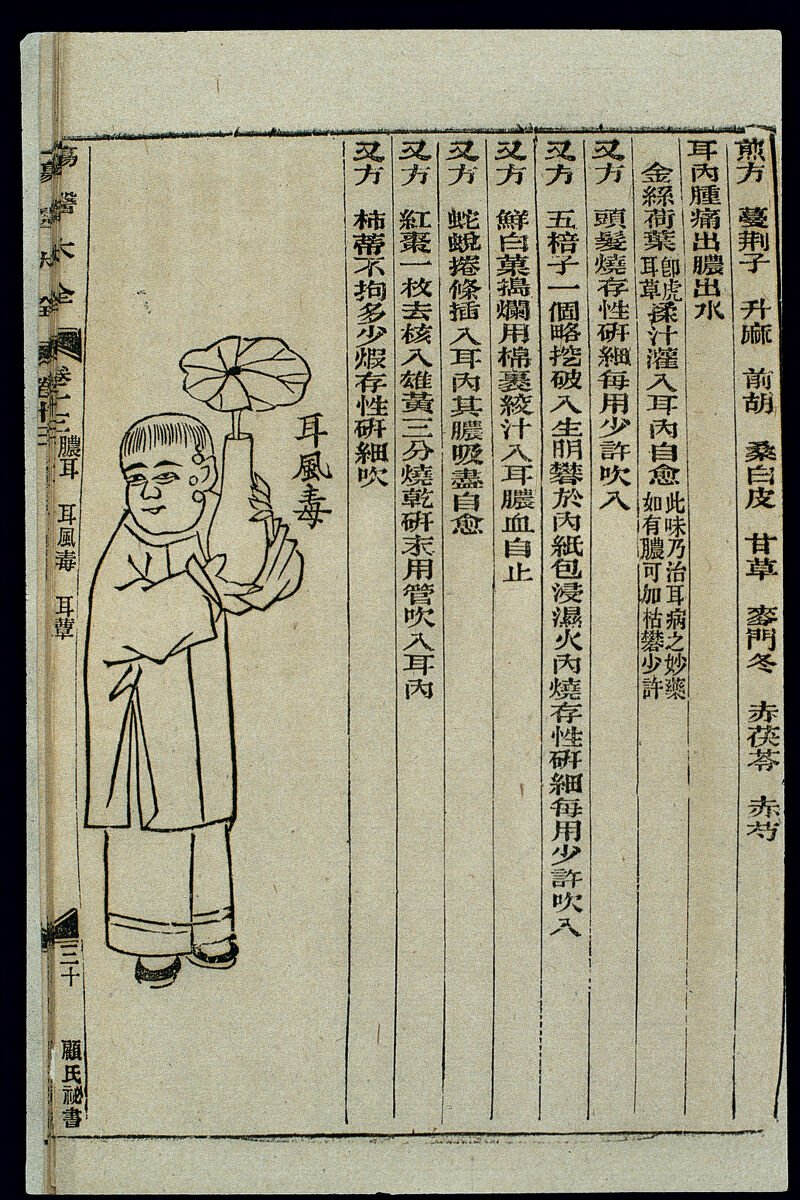 煎方　蔓荆子　升麻　前胡　桑白皮　甘草　麥門冬　赤茯苓　赤芍
耳內腫痛出膿出水
金絲荷葉卽虎耳草揉汁灌入耳內自愈此味乃治耳病之妙藥如有膿可加枯礬少許
又方　頭髮燒存性硏細每用少許吹入
又方　五棓子一個略挖破入生明礬於內紙包浸濕火內燒存性硏細每用少許吹入
又方　鮮白菓搗爛用棉裹絞汁入耳膿血自止
又方　蛇蛻捲條插入耳內其膿吸盡自愈
又方　紅棗一枚去核入雄黃三分燒乾硏末用管吹入耳內
又方　柿蒂不拘多少煅存性硏細吹
耳風毒
瘍醫大全　卷十三　膿耳　耳風毒　耳蕈　三十　顧氏祕書